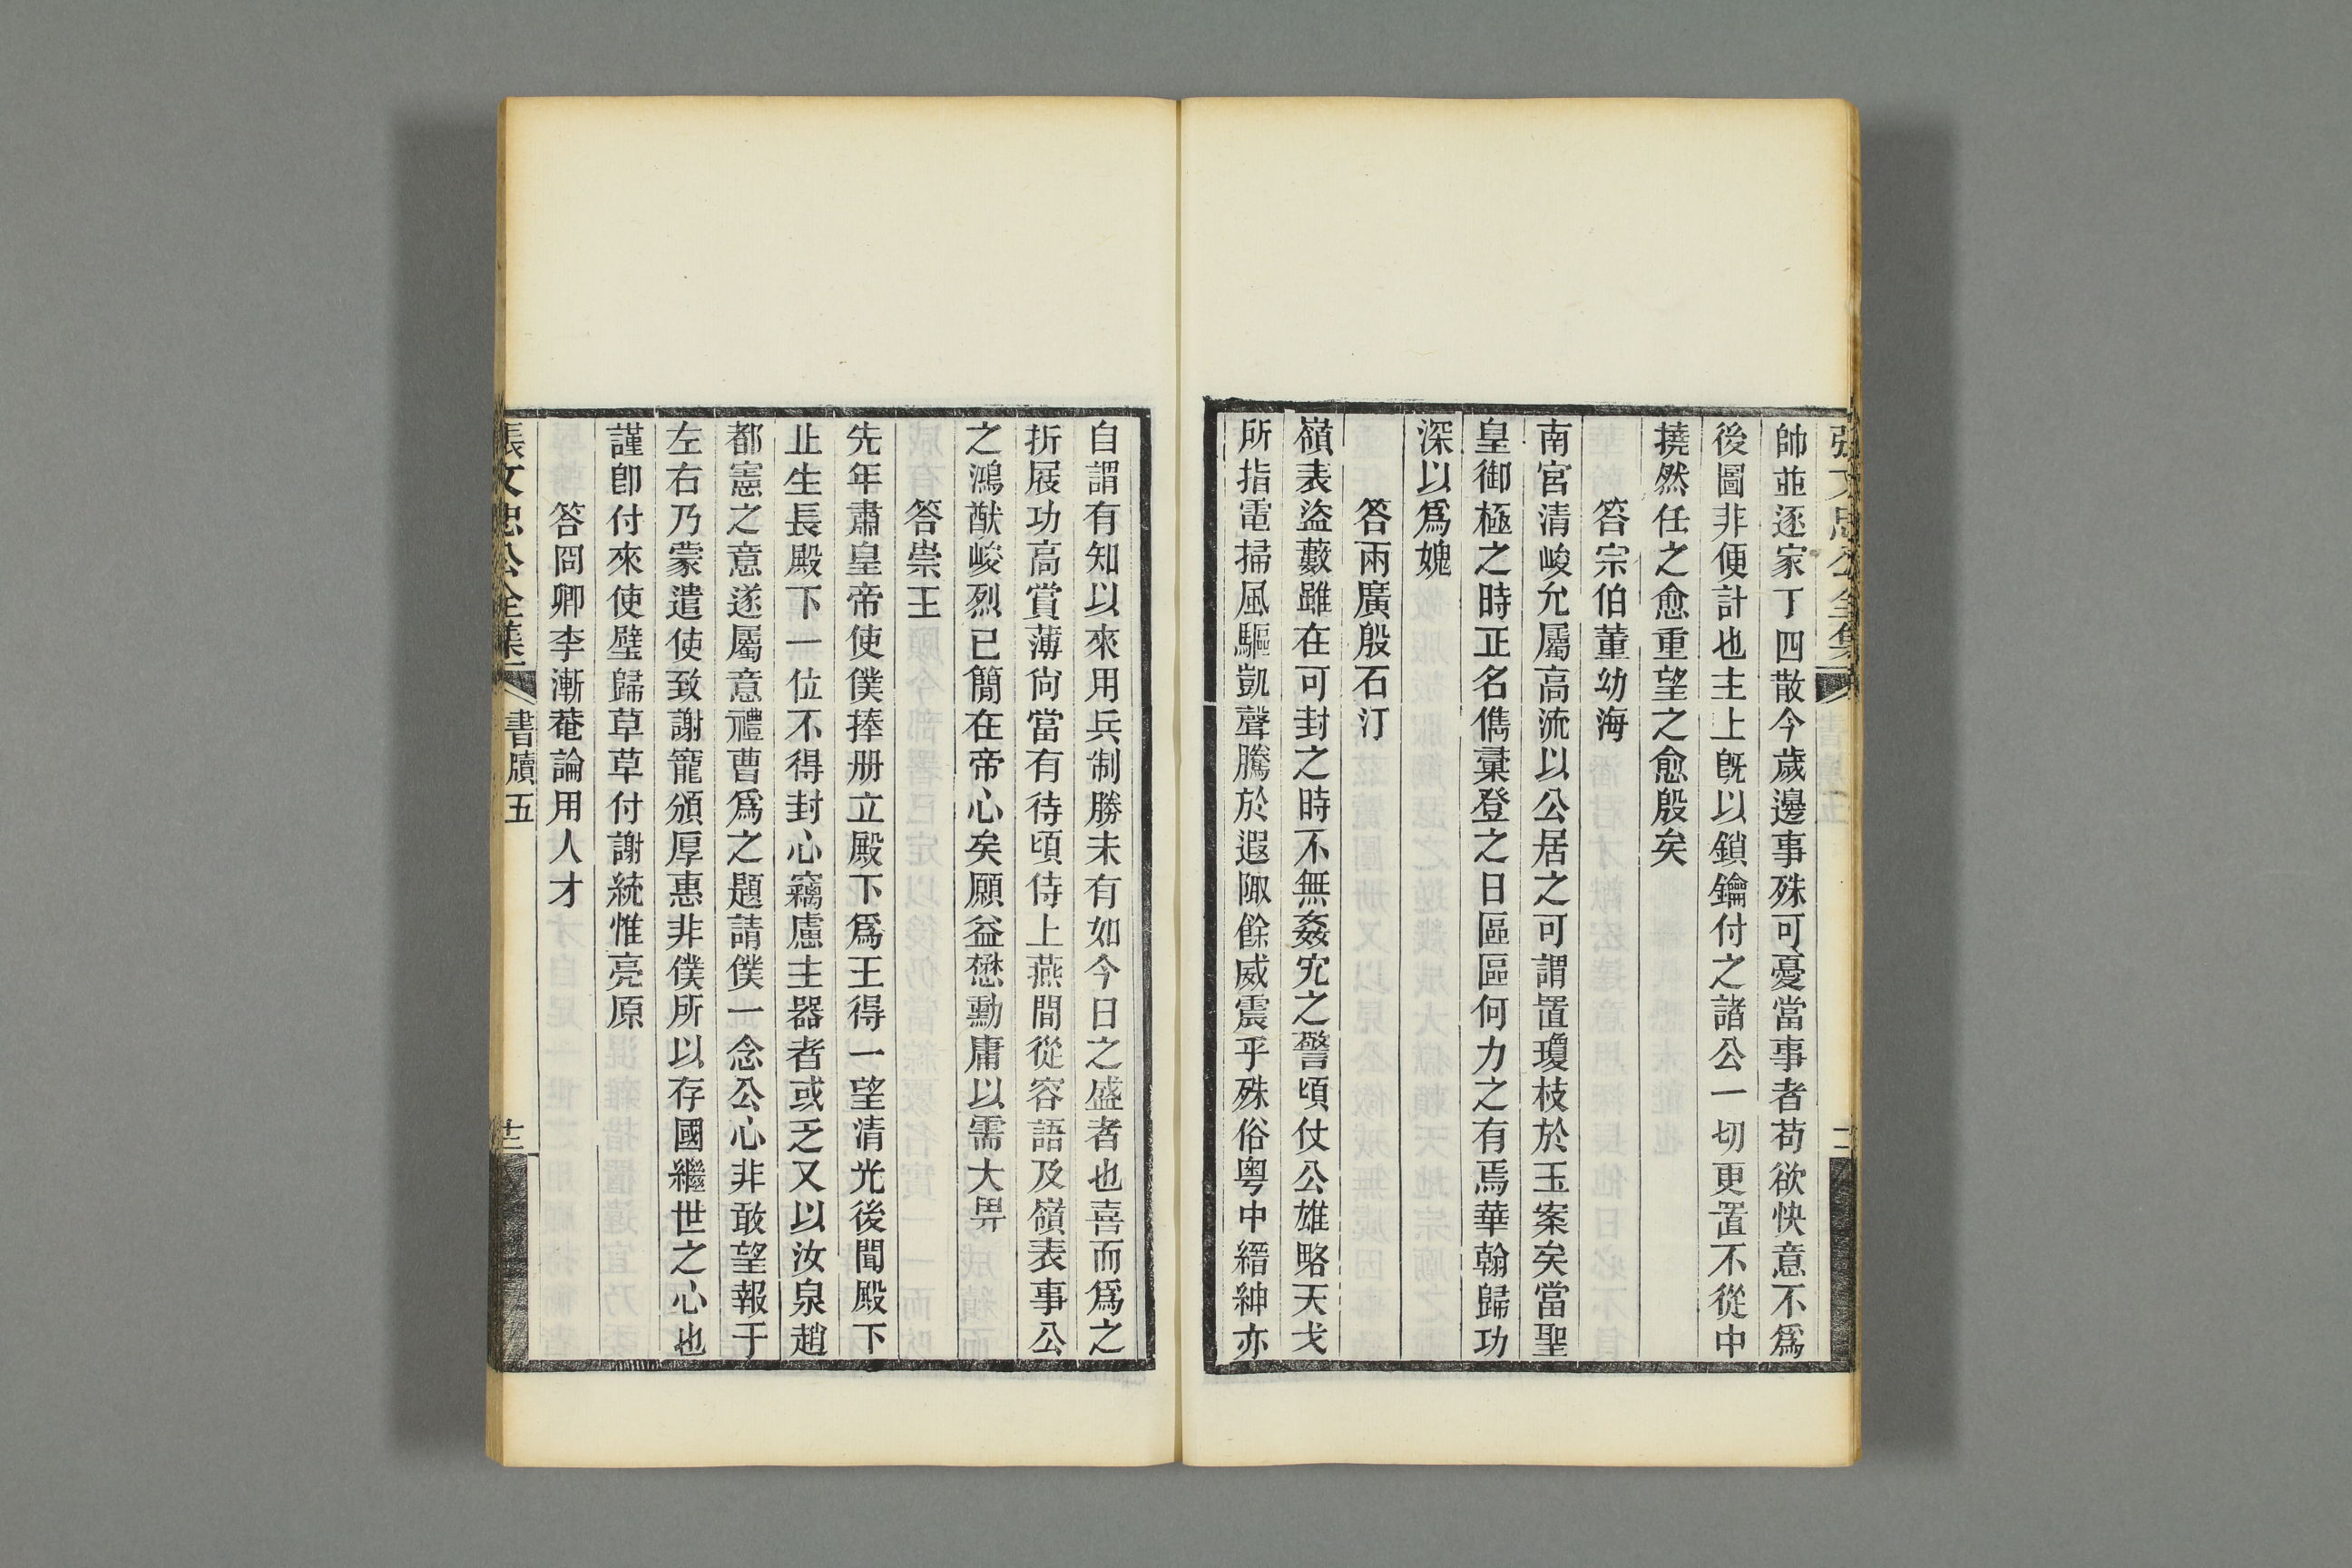 帥並逐家丁四散今歲邊事殊可憂當事者苟欲快意不爲
後圖非便計也主上旣以鎖鑰付之諸公一切更置不從中
撓然任之愈重望之愈殷矣
答宗伯董幼海
南宮清峻允屬高流以公居之可謂置瓊枝於玉案矣當聖
皇御極之時正名儁彙登之日區區何力之有焉華翰歸功
深以爲媿
答兩廣殷石汀
嶺表盜藪雖在可封之時不無姦宄之警頃仗公雄略天戈
所指電掃風驅凱聲騰於遐陬餘威震乎殊俗粵中縉紳亦
自謂有知以來用兵制勝未有如今日之盛者也喜而爲之
折屐功高賞薄尙當有待頃侍上燕間從容語及嶺表事公
之鴻猷峻烈已簡在帝心矣願益懋勳庸以需大畀
答崇王
先年肅皇帝使僕捧册立殿下爲王得一望清光後聞殿下
止生長殿下一位不得封心竊慮主器者或乏又以汝泉趙
都憲之意遂屬意禮曹爲之題請僕一念公心非敢望報于
左右乃蒙遣使致謝寵頒厚惠非僕所以存國繼世之心也
謹卽付來使璧歸草草付謝統惟亮原
答冏卿李漸菴論用人才
張文忠公全集 書牘五 十二